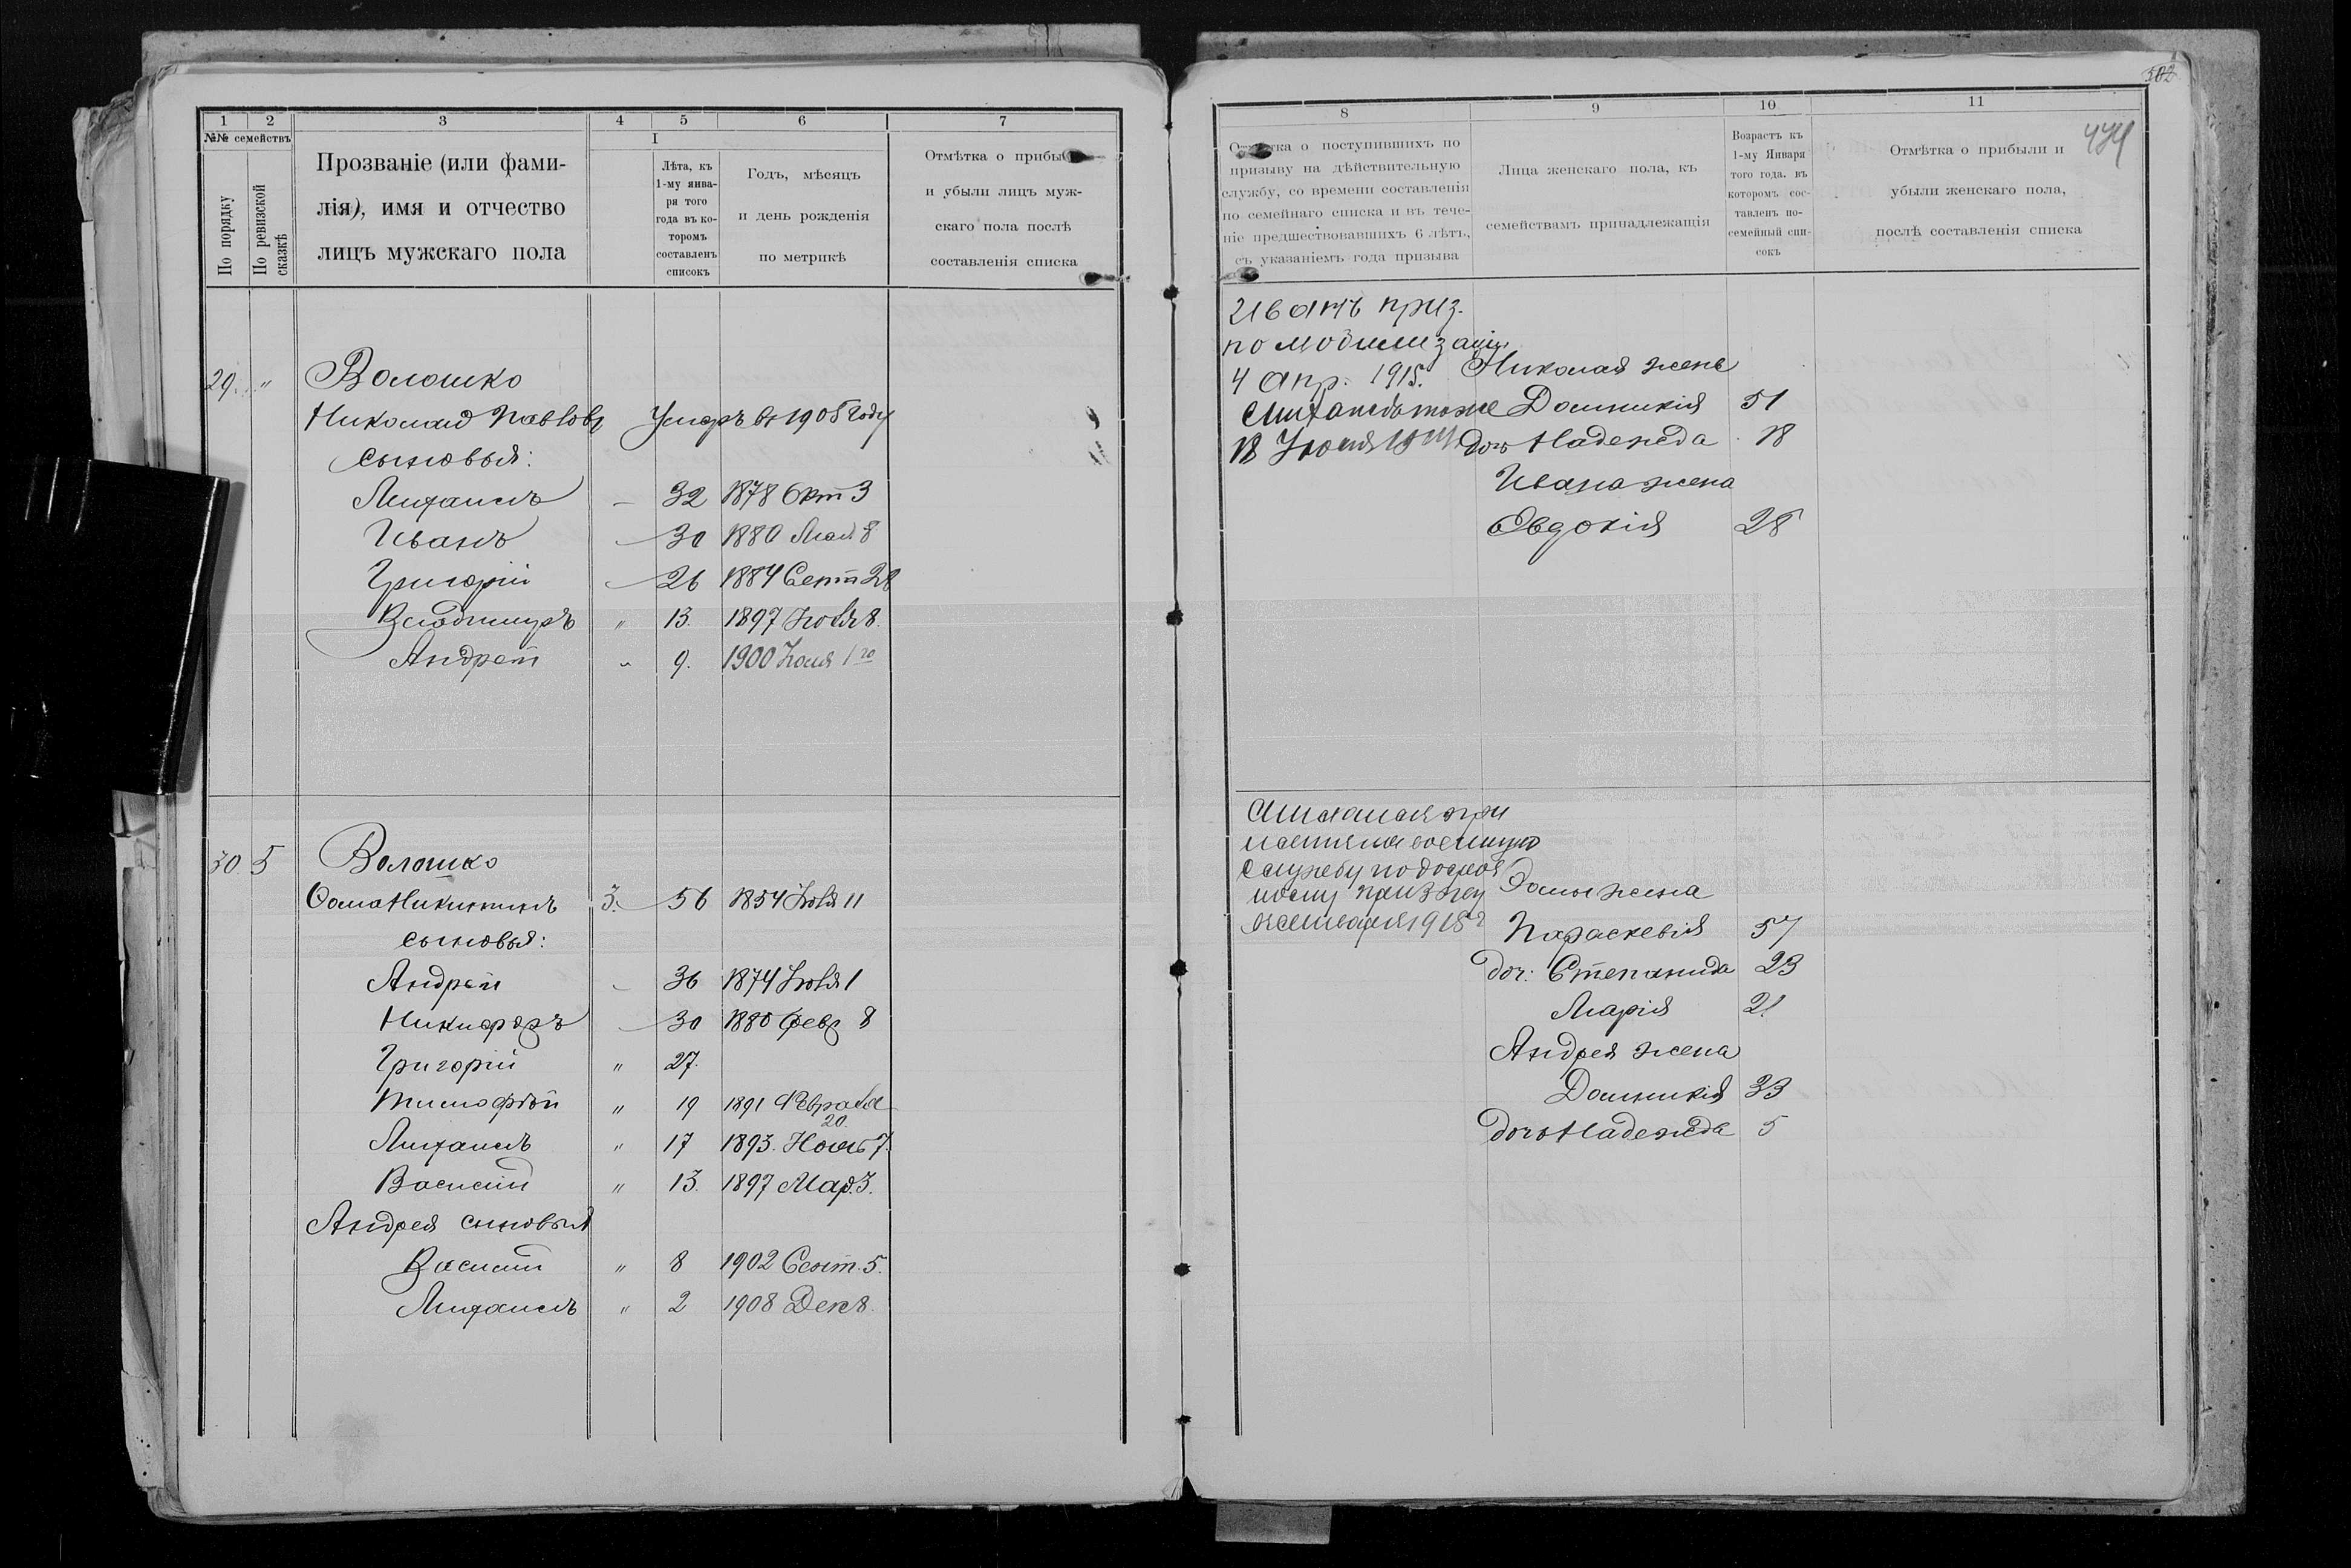 1 2 3 4 5 6 7
№№ семействъ
По порядку
По ревизской сказкѣ
Прозваніе (или фами-
лія), имя и отчество
лицъ мужскаго пола
I
Лѣта, къ
1-му янва-
ря того
года въ ко-
торомъ
составленъ
списокъ
Годъ, мѣсяцъ
и день рожденія
по метрикѣ
Отмѣтка о прибы
и убыли лицъ муж-
скаго пола послѣ
составленія списка
29. " Волошко
Николай Павловъ Умеръ въ 1905 году
сыновья:
Михаилъ — 32 1878 Окт 3
Иванъ — 30 1880 Мая 8
Григорій — 26 1884 Сент 28
Владимиръ " 13. 1897 Іюля 8.
Андрей " 9. 1900 Іюля 1го
30 5 Волошко
Ѳома Никитинъ 3. 56 1854 Іюля 11
сыновья:
Андрей - 36 1874 Іюля 1
Никифоръ — 30 1880 февр 8
Григорій " 27.
Тимофѣй " 19 1891 Февраля
20.
Михаилъ " 17 1893. Нояб 7.
Василій " 13. 1897 Мар. 3.
Андрея сыновья
Василій " 8 1902 Сент. 5.
Михаилъ " 2 1908 Дек 8.
502
474
8 9 10 11
Отмѣтка о поступившихъ по
призыву на дѣйствительную
службу, со времени составленія
по семейнаго списка и въ тече-
ніе предшествовавшихъ 6 лѣтъ,
съ указаніемъ года призыва
Лица женскаго пола, къ
семействамъ принадлежащія
Возрастъ къ
1-му Января
того года. въ
которомъ сос-
тавленъ по-
семейный спи-
сокъ
Отмѣтка о прибыли и
убыли женскаго пола,
послѣ составленія списка
Иванъ приз.
по мобилизаціи
4 Апр. 1915.
Михаилъ тоже
18 Іюля 1914
Николая жена
Домникія 51
доч Надежда 18
Ивана жена
Евдокія 28
Михаилъ при
на военную
службу по досроч
ному призыву
1915 г
Ѳомы жена
Параскевія 57
доч: Степанида 23
Марія 21
Андрея жена
Домникія 33
дочь Надежда 5